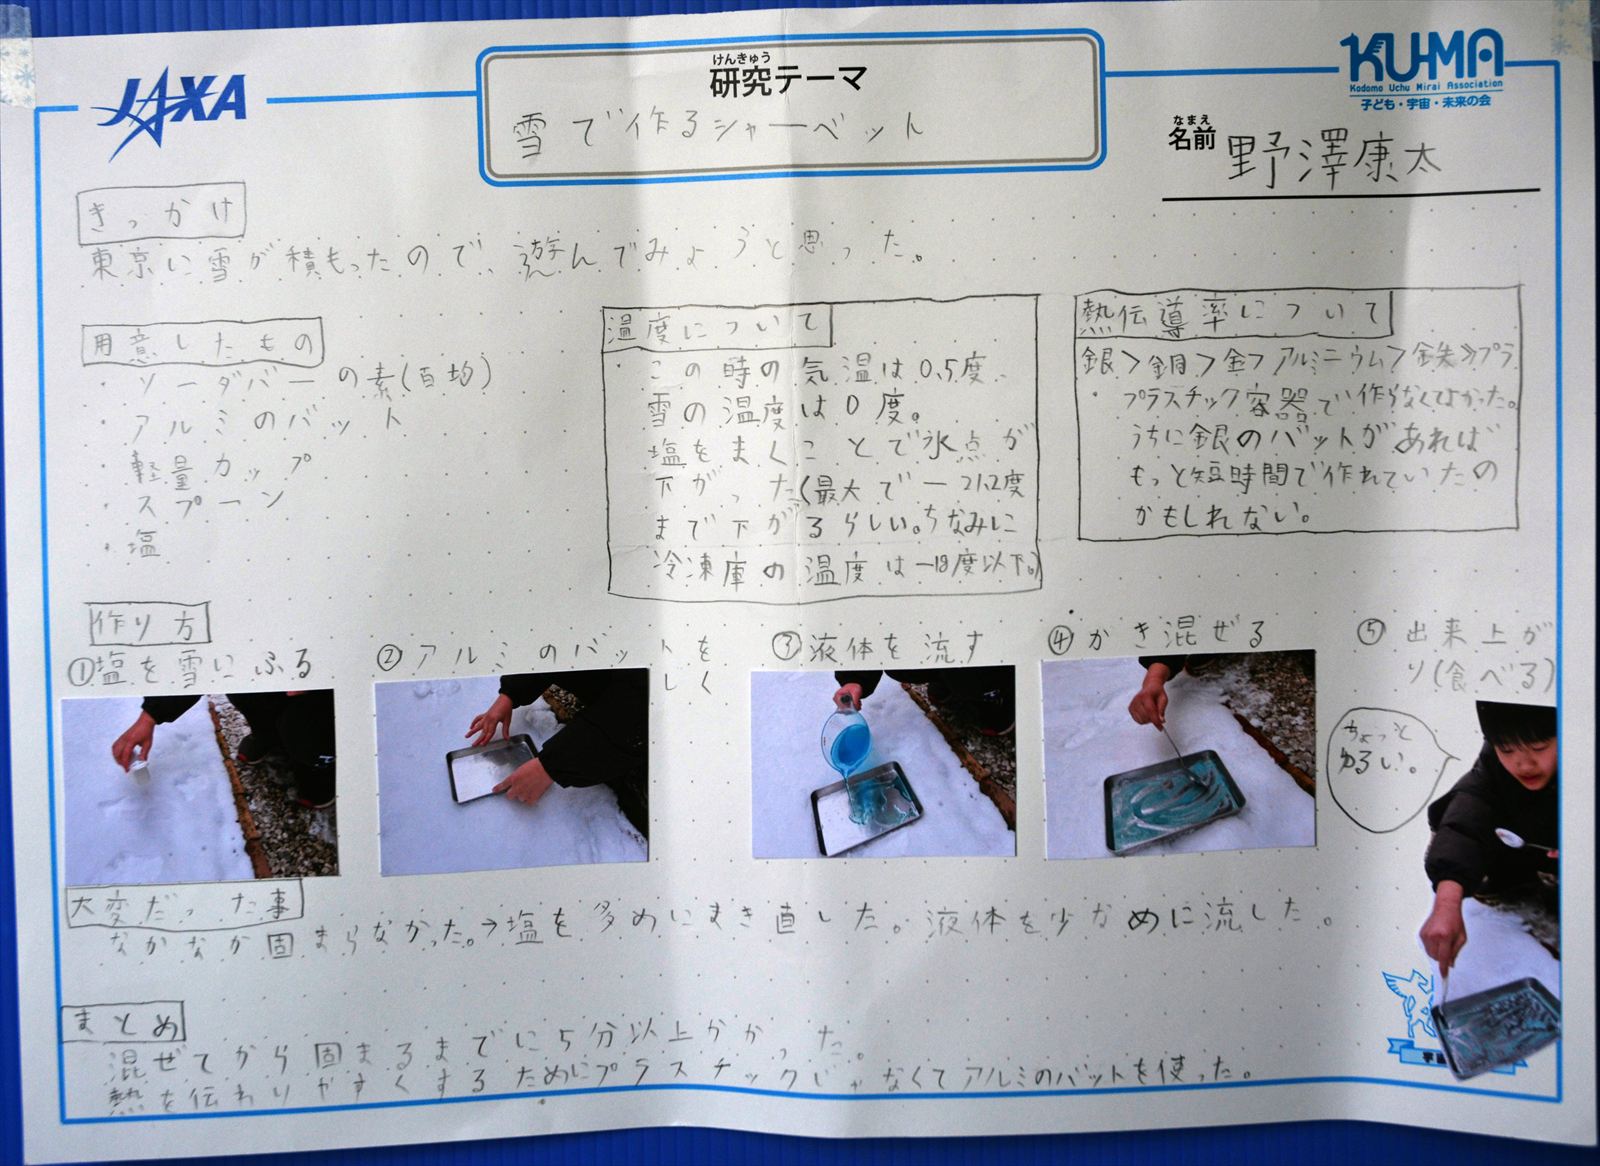 JAXA
けんきゅう
研究テーマ
雪で作るシャーベット
KU-MA
Kodomo Uchu Mirai Association
子ども・宇宙・未来の会
なまえ
名前
野澤康太
きっかけ
東京に雪が積もったので、遊んでみようと思った。
用意したもの
・ソーダバーの素(百均)
・アルミのバット
・軽量カップ
・スプーン
・塩
温度について
・この時の気温は0.5度、
雪の温度は0度。
塩をまくことで氷点が
下がった(最大で-21.2度
まで下がるらしい。ちなみに
冷凍庫の温度は-18度以下。)
熱伝導率について
銀>銅>金>アルミニウム>鉄≫プラ
・プラスチック容器で作らなくてよかった。
うちに銀のバットがあれば
もっと短時間で作れていたの
かもしれない。
作り方
①塩を雪にふる
②アルミのバットを
しく
③液体を流す
④かき混ぜる
⑤出来上が
り(食べる)
ちょっと
ゆるい。
大変だった事
なかなか固まらなかった。→塩を多めにまき直した。液体を少なめに流した。
まとめ
混ぜてから固まるまでに5分以上かかった。
熱を伝わりやすくするためにプラスチックじゃなくてアルミのバットを使った。
宇宙